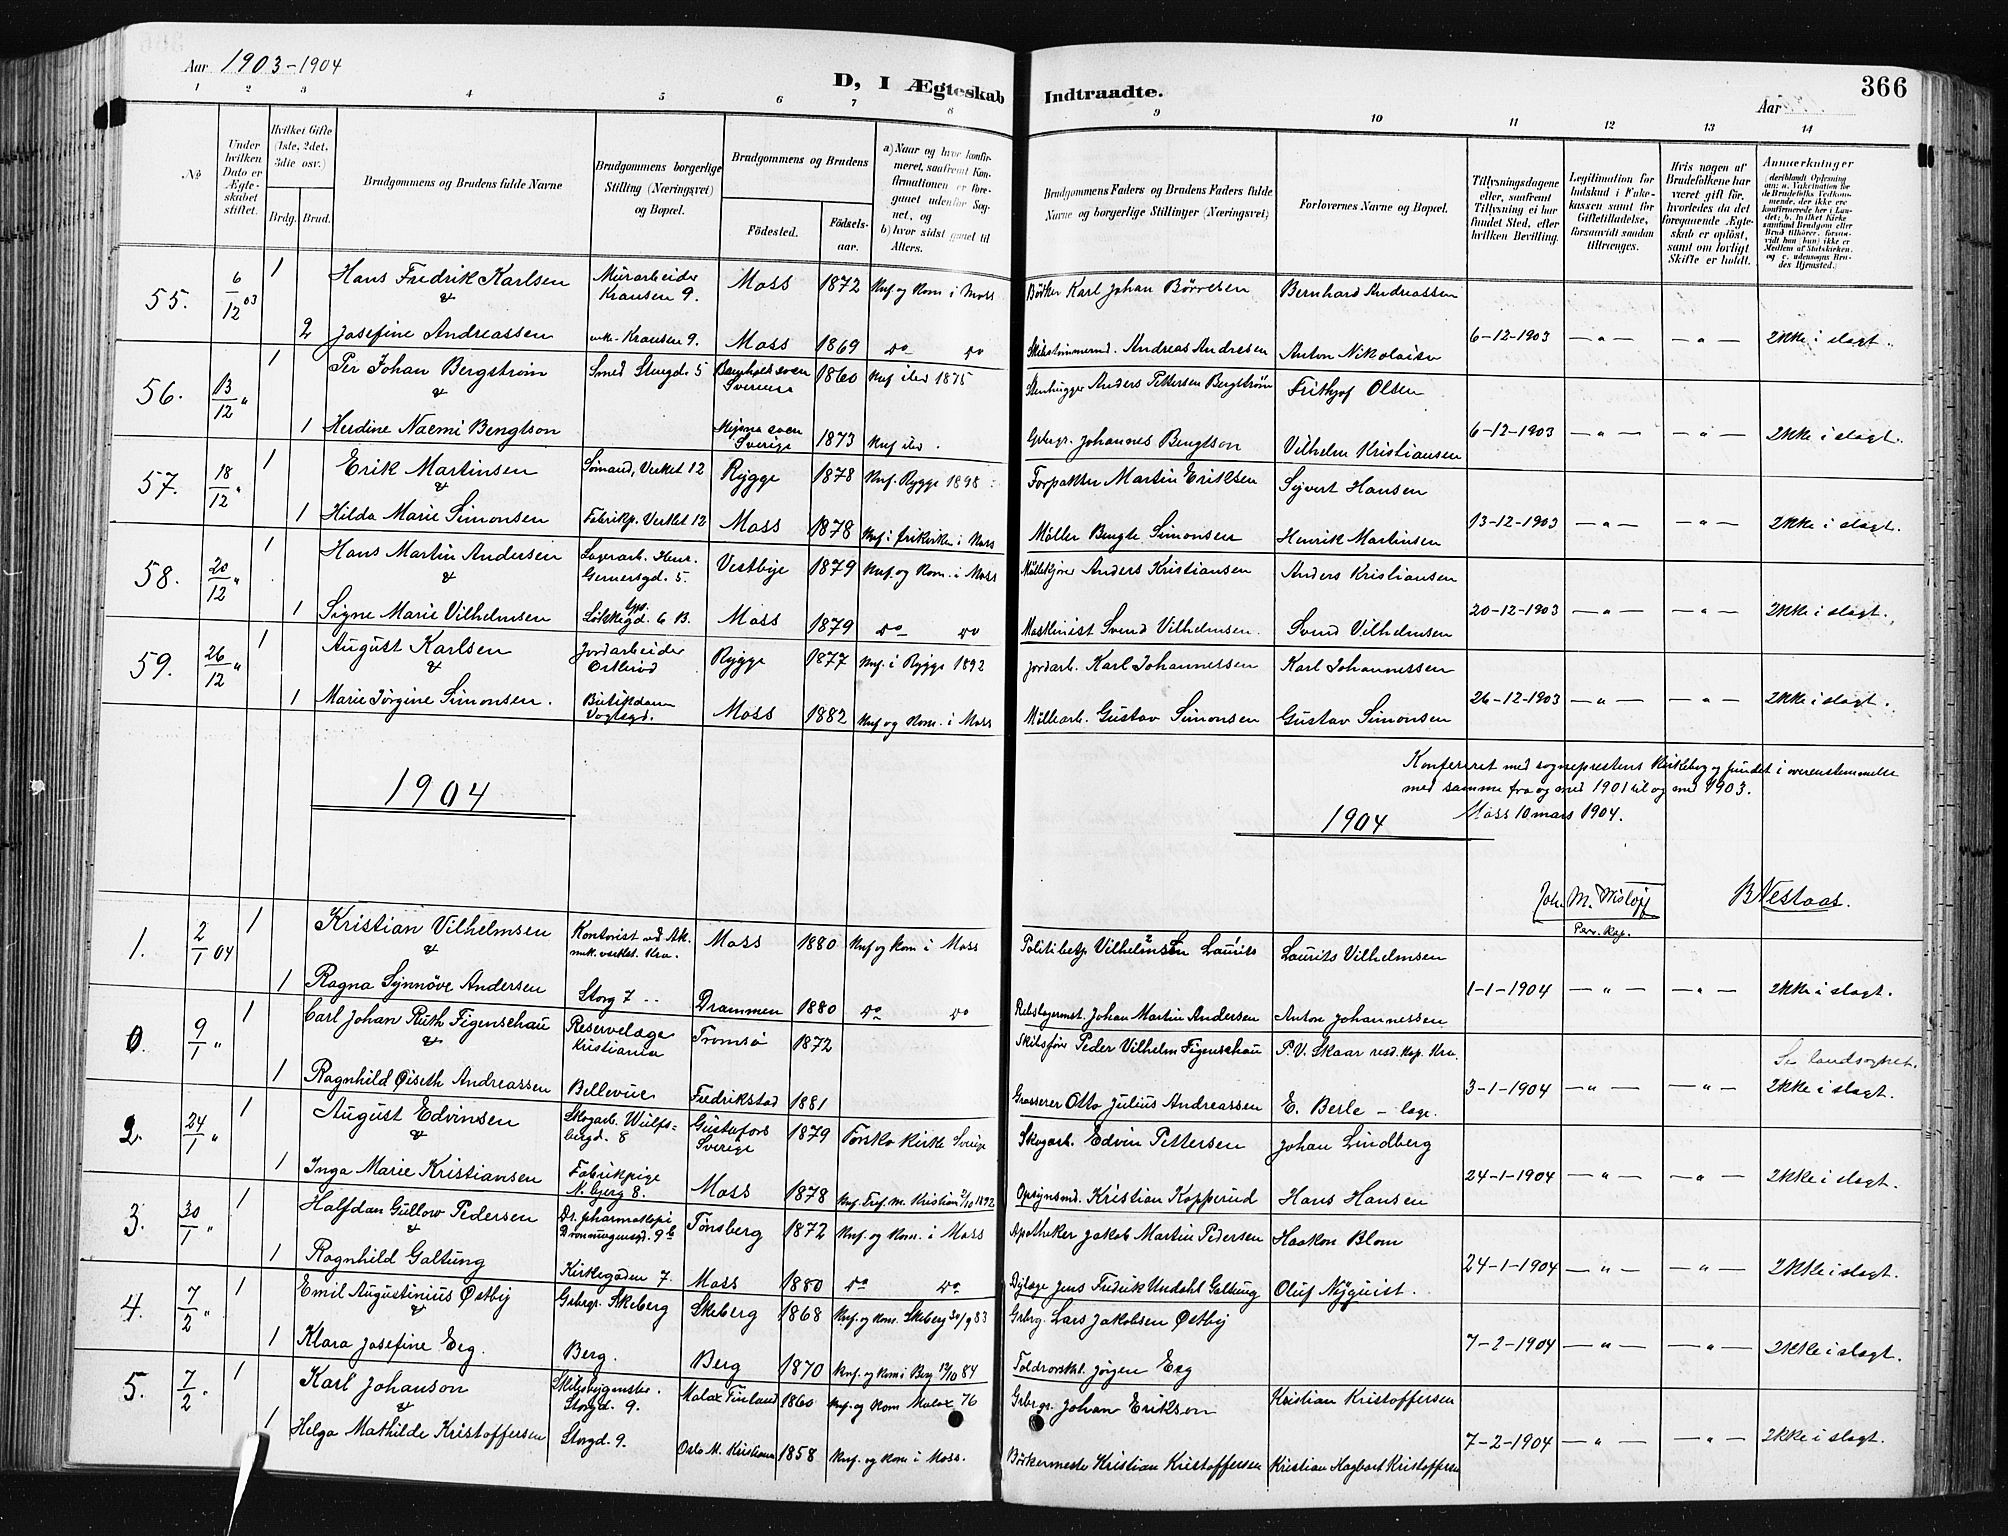 Aar 1903-1904
D, I Ægteskab Indtraadte.
Aar
366
1 2 3 4 5 6 7 8 9 10 11 12 13 14
No
Under hvilken Dato er Ægteskabet stiftet.
Hvilket Gifte (1ste, 2det, 3die osv.)
Brdg. Brud.
Brudgommens og Brudens fulde Navne
Brudgommens borgerlige Stilling (Næringsvei) og Bopæl.
Brudgommens og Brudens
Födested.
Födselsaar.
a) Naar og hvor konfirmeret, saafremt Konfirmationen er foregaaet udenfor Sognet, og
b) hvor sidst gaaet til Alters.
Brudgommens Faders og Brudens Faders fulde Navne og borgerlige Stillinger (Næringsvei)
Forlovernes Navne og Bopæl.
Tillysningsdagene eller, saafremt Tillysning ei har fundet Sted, efter hvilken Bevilling.
Legitimation for Indskud i Enkekassen samt for Giftetilladelse, forsaavidt saadan tiltrænges.
Hvis nogen af Brudefolkene har været gift för, hvorledes da det foregaaende Ægteskab er oplöst, samt om lovligt Skifte er holdt.
Anmærkninger
55. 6/12 03 1 Hans Fredrik Karlsen Murarbeider Kransen 9. Moss 1872 Knf og Kom i Moss Bøtker Karl Johan Börresen Bernhard Andreassen
&
2 Josefine Andreassen enke Kransen 9. Moss 1869 do do Andreas Andresen Anton Nikolaisen 6-12-1903 —„— —„— Ikke i slagt.
56. 13/12 „ 1 Per Johan Bergström Smed Storgd. 5 Sverige 1860 Knf ibd 1875 Stenhugger Anders Pettersen Bergström Frithjof Olsen
&
1 Herdine Naemi Bengtson Sverige 1873 Knf ibd. Grbrgr. Johannes Bengtson Vilhelm Kristiansen 6-12-1903 —„— —„— Ikke i slagt.
57. 18/12 „ 1 Erik Martinsen Sømand, Verket 12 Rygge 1878 Knf. Rygge 1898 Forpakter Martin Eriksen Sejvert Hansen
&
1 Hilda Marie Simonsen Fabrikp. Verket 12 Moss 1878 Knf. i frikirken i Moss Møller Bengte Simonsen Henrik Martinsen 13-12-1903 —„— —„— Ikke i slagt.
58. 20/12 „ 1 Hans Martin Andersen Lagerarb. Henr. Gernersgd. 5. Vestbye 1879 Knf. og Kom. i Moss Møllekjører Anders Kristiansen Anders Kristiansen
&
1 Signe Marie Vilhelmsen Løkkegd. 6 B. Moss 1879 do do Maskinist Svend Vilhelmsen. Svend Vilhelmsen 20-12-1903 —„— —„— Ikke i slagt.
59. 26/12 „ 1 August Karlsen Jordarbeider Østlerød Rygge 1877 Knf. i Rygge 1892 Jordarb. Karl Johannessen Karl Johannessen
&
1 Marie Jørgine Simonsen. Butikdame Vogtsgd. Moss 1882 Knf og Kom. i Moss Møllearb. Gustav Simonsen Gustav Simonsen 26-12-1903 —„— —„— Ikke i slagt.
1904
Konfereret med sogneprestens kirkebog og fundet i overensstemmelse
med samme fra og med 1901 til og med 1903.
1904 Moss 10 mars 1904.
Joh. M. Wisløff B Nestaas.
Pers. Kap.
1. 2/1 04 1 Kristian Vilhelmsen Kontorist Moss 1880 Knf og Kom i Moss Politibetj. Vilhelmsen Laurits Laurits Vilhelmsen
&
1 Ragna Synnöve Andersen Storg 7 Drammen 1880 do do Rebslagermst. Johan Martin Andersen Anton Johannessen 1-1-1904 —„— —„— Ikke i slagt.
0. 9/1 „ 1 Carl Johan Ruth Figenschau Reservelæge Kristiania Tromsö 1872 Skibsfører Peder Vilhelm Figenschau P. V. Skaar resd. Kap. Kra.
& Se landsognet.
1 Ragnhild Øiseth Andreassen Bellevue Fredrikstad 1881 Grosserer Otto Julius Andreassen E. Berle – læge 3-1-1904 —„— —„— Ikke i slagt.
2. 24/1 „ 1 August Edvinsen Skogarb. Wulfsbergd. 8 Gustafors Sverige 1879 Torsko Kirke Sverige Skogarb. Edvin Pettersen Johan Lindberg
&
1 Inga Marie Kristiansen Fabrikpige N. Gjerg 8. Moss 1878 Opsynsmd. Kristian Kopperud Hans Hansen 24-1-1904 —„— —„— Ikke i slagt.
3. 30/1 „ 1 Halfdan Gullow Pedersen Dronningensgd. 9b Tönsberg 1872 Knf. og Kom. i Moss Apotheker Jakob Martin Pedersen Haakon Blom
&
1 Ragnhild Galtung Kirkegaden 7. Moss 1880 do do. Dyrlæge Jens Fredrik Undahl Galtung Oluf Nyquist. 24-1-1904 —„— —„— Ikke i slagt.
4. 7/2 „ 1 Emil Augustinius Østby Grbrgr. Skeberg Skeberg 1868 Knf. og Kom. Skeberg 30/9 83 Grbrg. Lars Jakobsen Østby
&
1 Klara Josefine Erg. Berg. Berg 1870 Knf. og Kom i Berg 12/10 84 Toldrorskl. Jørgen Erg 7-2-1904 —„— —„— Ikke i slagt.
5. 7/2 „ 1 Karl Johanson Skibsbygmester. Storgd. 9. Malax Finland 1860 Knf. og Kom Malax 76 Grbrgr. Johan Erikson Kristian Kristoffersen
1 Helga Mathilde Kristoffersen Storgd. 9. Oslo M. Kristiania 1858 Knf. og Kom i Moss. Bødkermester Kristian Kristoffersen Kristian Hagbart Kristoffersen 7-2-1904 —„— —„— Ikke i slagt.